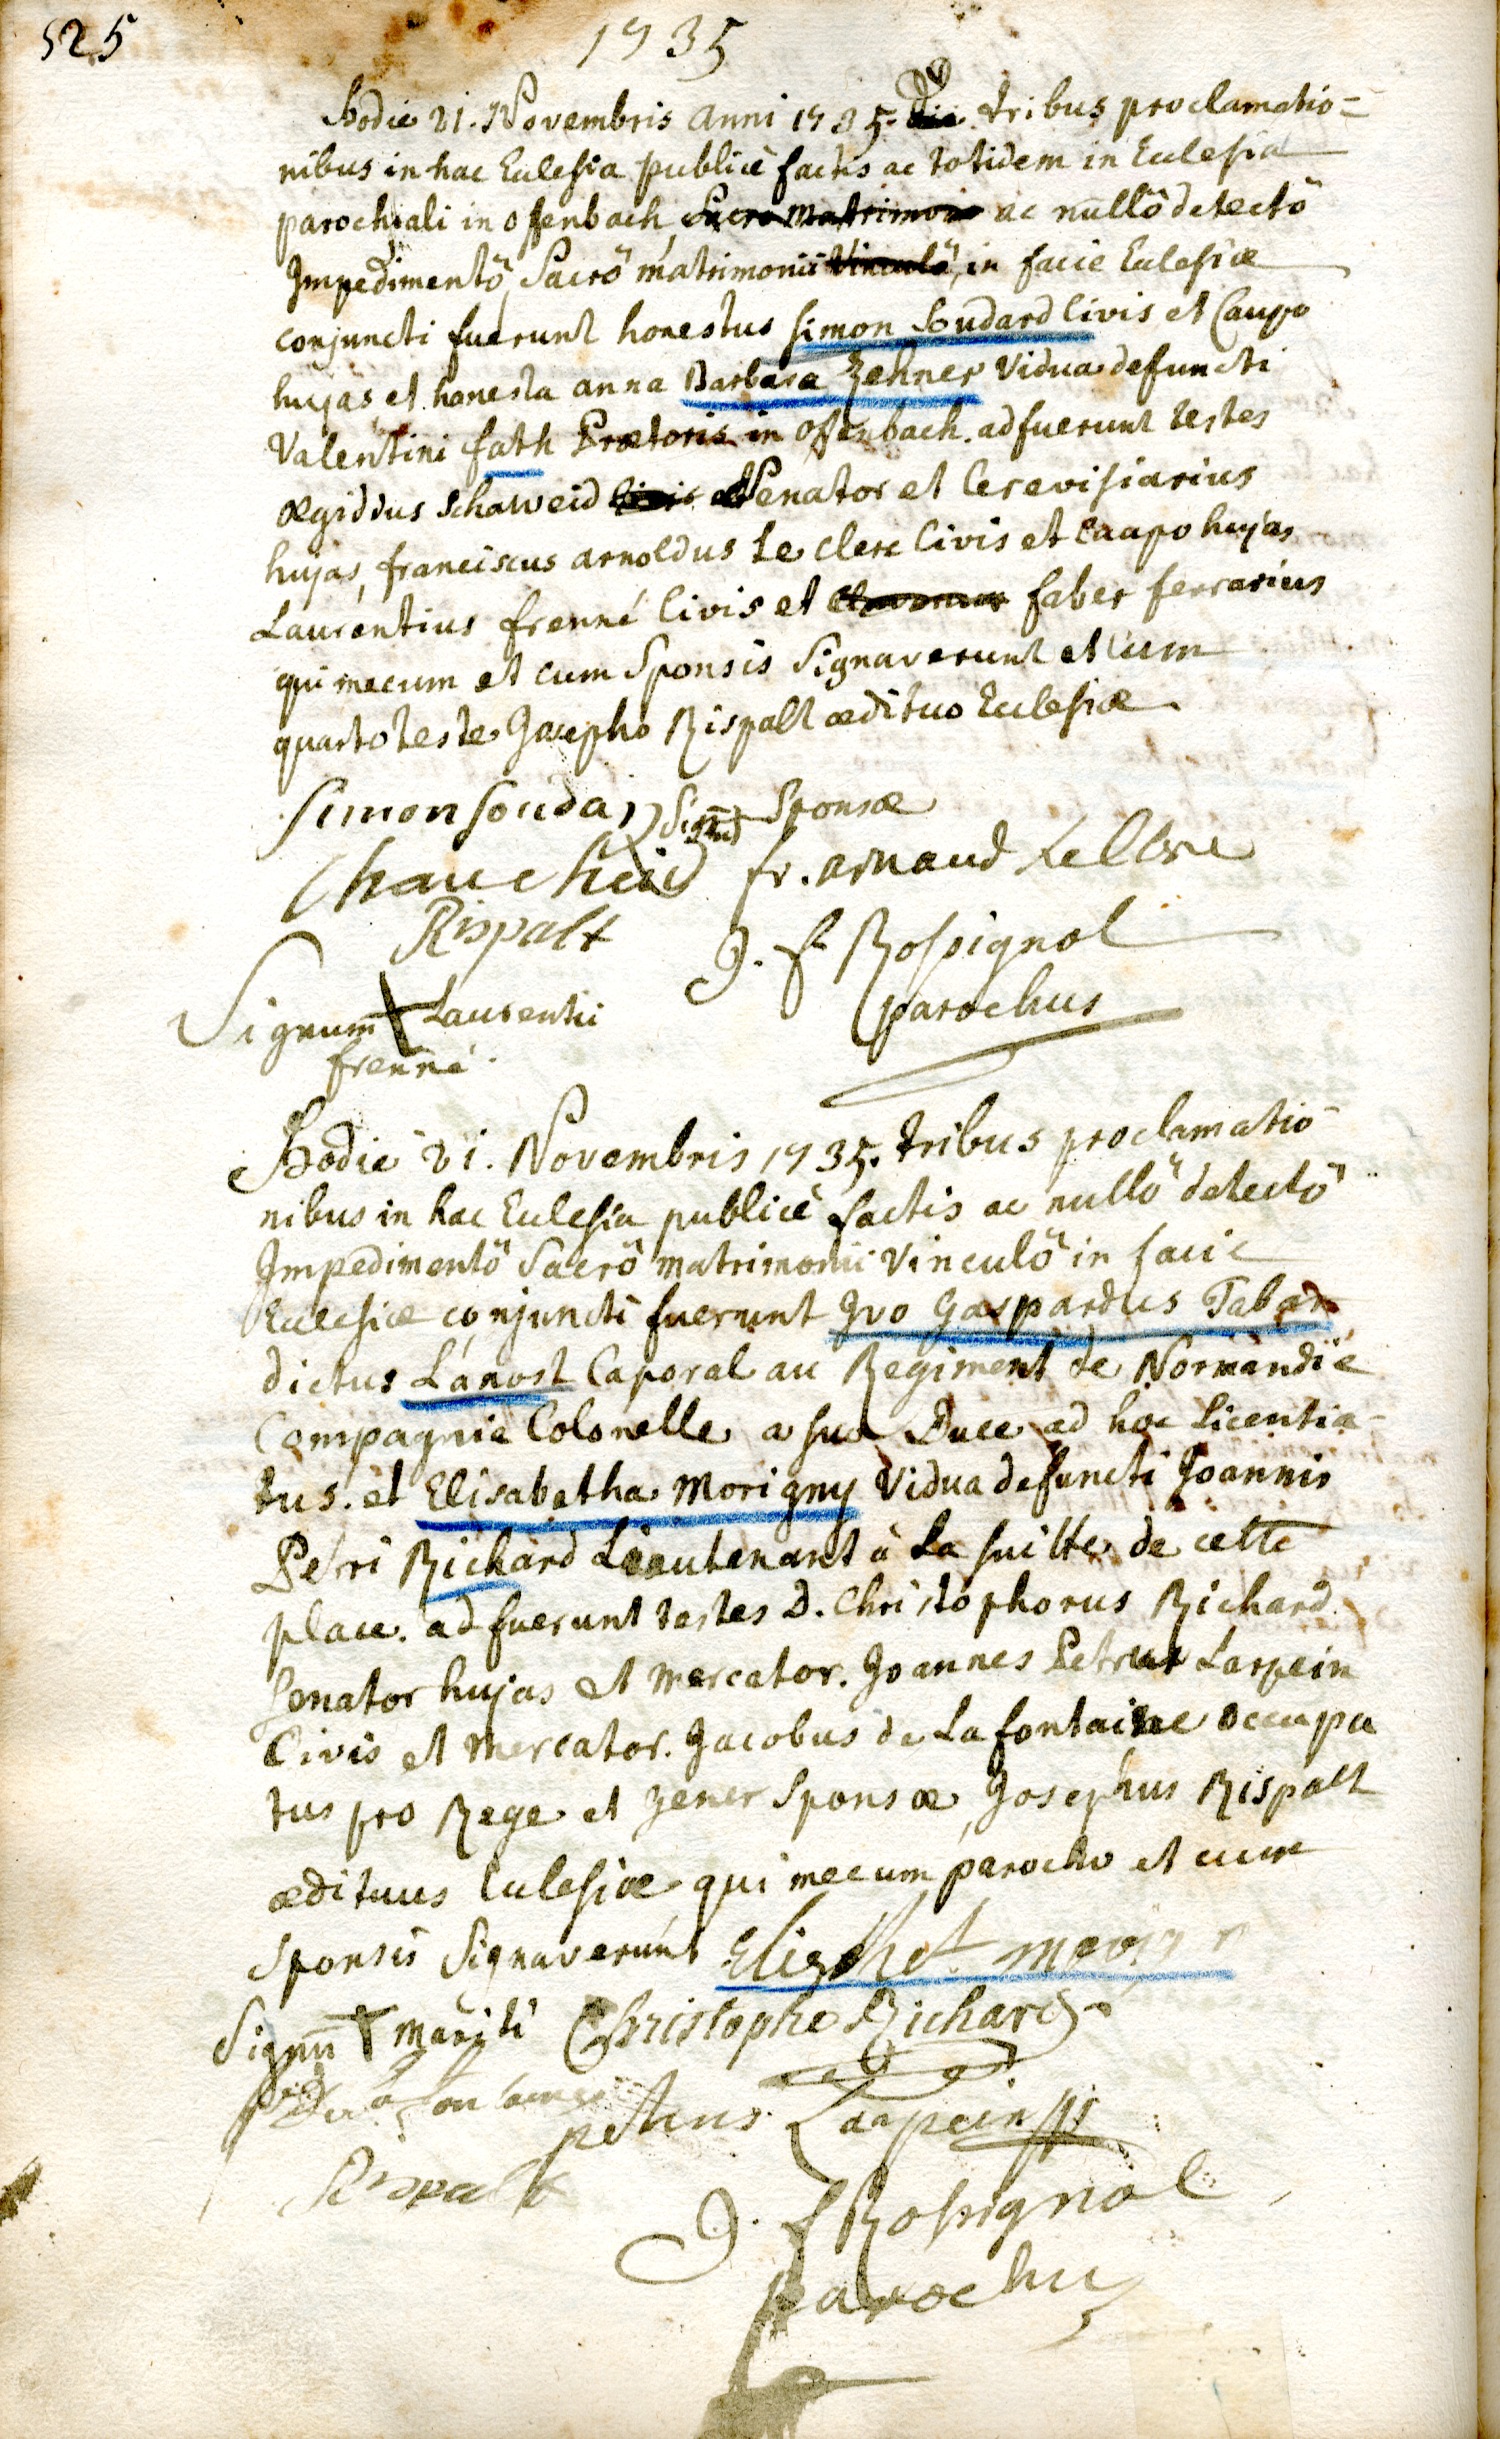 525
1735
Hodie 21. Novembris anni 1735. tribus proclamatio=
nibus in hac Ecclesia publicè factis ac totidem in Ecclesia
parochiali in offenbach, Sacro matrimonio ac nullô detectô
Impedimentô, Sacrô matrimonii Vinculô, in facie Ecclesiæ
conjuncti fuerunt honestus simon Hudard Civis et Caupo
hujas et honesta anna Barbara Zehner Vidua defuncti
Valentini fath Prætoris in offenbach. adfuerunt testes
ægiddus Schaweid Senator et Cerevisiarius
hujas, franciscus arnoldus Le Clerc Civis et Caupo hujas
Laurentius frenné Civis et faber ferrarius
qui mecum et cum Sponsis Signaverunt et cum
quarto teste Josepho Rispalt ædituo Ecclesiæ.
Simon Souda Sponsæ
Chaucheid fr. arnaud Le Clerc
Rispalt J. f Rossignol
parochus
Signum + Laurentii
frenné.
Hodie 21. Novembris 1735. tribus proclamatio
nibus in hac Ecclesia publicè factis ac nullô detectô
Impedimentô Sacrô matrimonii Vinculô in facie
Ecclesiæ conjuncti fuerunt Ivo Gaspardus Tabar
dictus Lanost Caporal au Regiment de Normandie
Compagnie Colonelle a suo Duce ad hoc Licentia-
tus. et Elisabetha Morigny Vidua defuncti Joannis
Petri Richard Lieutenant à La suitte de cette
place. adfuerunt testes D. Christophorus Richard
Senator hujas et Mercator. Joannes Petrus Larpein
Civis et Mercator. Jacobus de La fontaine occupa
tus pro Rege et gener Sponsæ, Josephus Rispalt
ædituus Ecclesiæ qui mecum parocho et cum
Sponsis Signaverunt
Signu + Mariti Christophe Richard
De La fontaine
petrus Larpein
Rispalt
J. f Rossignol
parochus